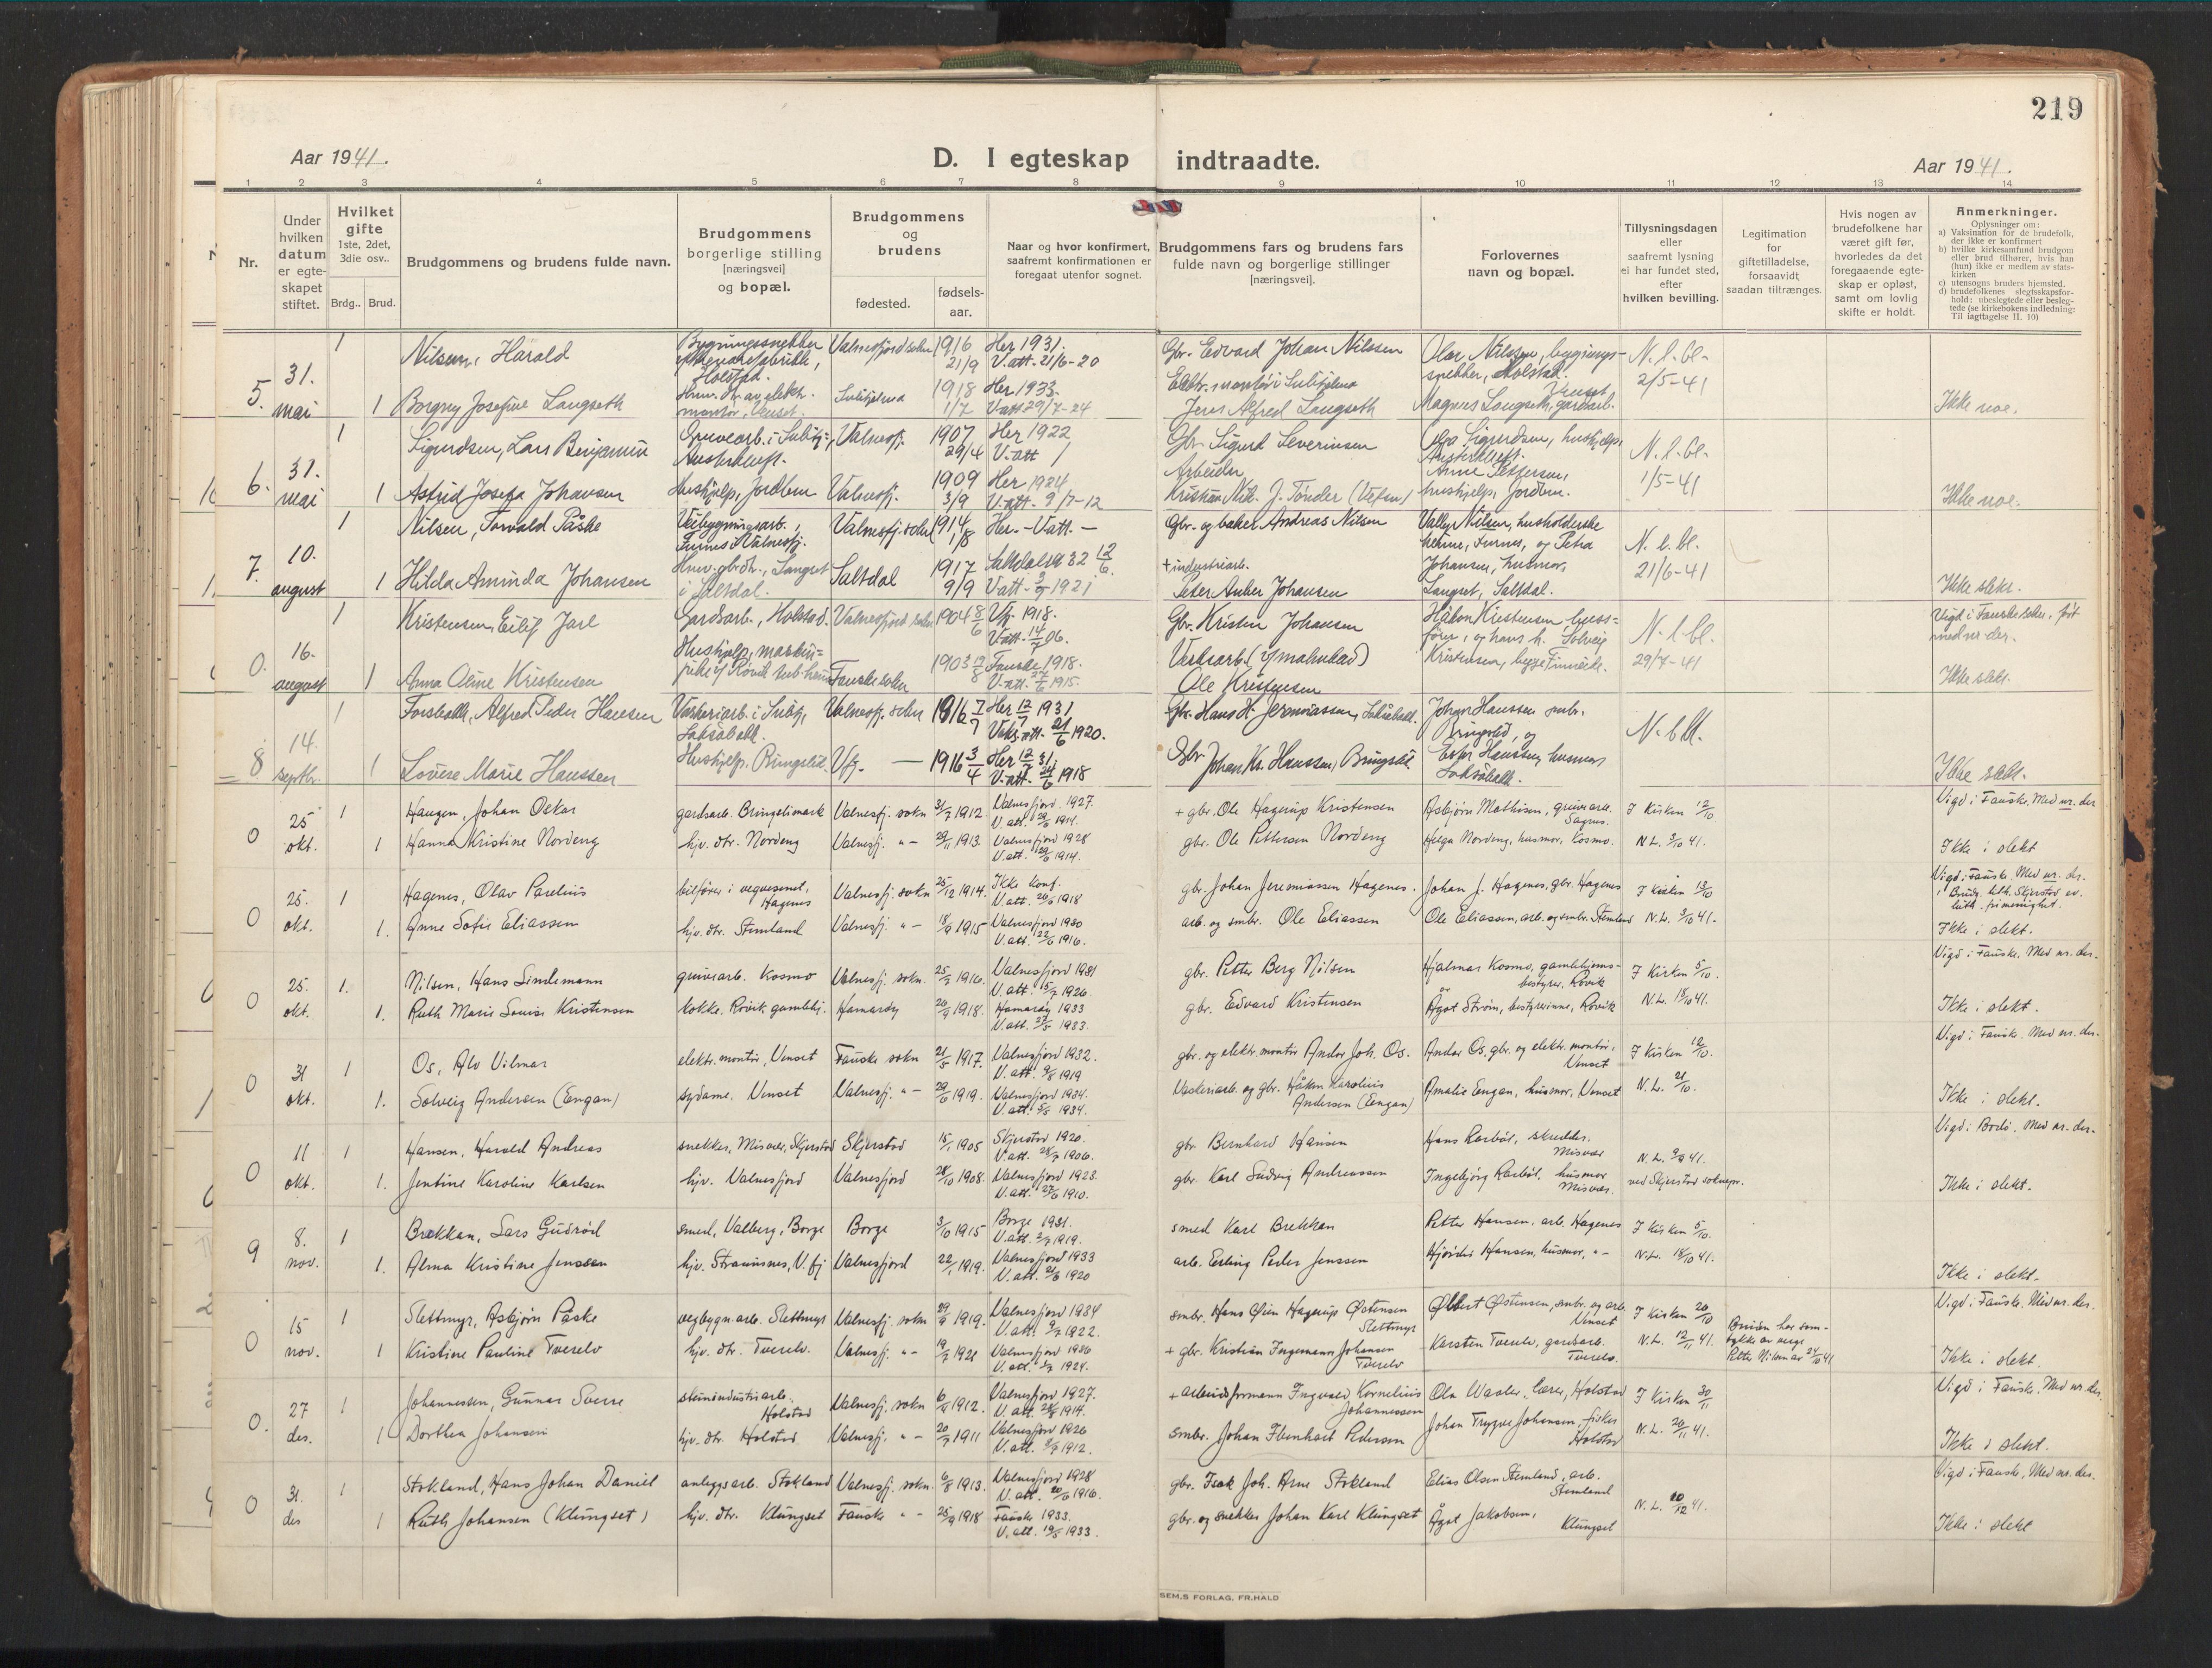 219
Aar 1941.
D. I egteskap indtraadte.
Aar 1941.
1 2 3 4 5 6 7 8 9 10 11 12 13 14
Nr.
Under hvilken datum er egte-skapet stiftet.
Hvilket gifte
1ste, 2det, 3die osv..
Brdg.. Brud.
Brudgommens og brudens fulde navn.
Brudgommens borgerlige stilling [næringsvei] og bopæl.
Brudgommens og brudens
fødested.
fødsels-aar.
Naar og hvor konfirmert, saafremt konfirmationen er foregaat utenfor sognet.
Brudgommens fars og brudens fars fulde navn og borgerlige stillinger [næringsvei].
Forlovernes navn og bopæl.
Tillysningsdagen eller saafremt lysning ei har fundet sted, efter hvilken bevilling.
Legitimation for giftetilladelse, forsaavidt saadan tiltrænges.
Hvis nogen av brudefolkene har været gift før, hvorledes da det foregaaende egte-skap er opløst, samt om lovlig skifte er holdt.
Anmerkninger.
Oplysninger om:
a) Vaksination for de brudefolk, der ikke er konfirmert
b) hvilke kirkesamfund brudgom eller brud tilhører, hvis han (hun) ikke er medlem av stats-kirken
c) utensogns bruders hjemsted.
d) brudefolkenes slegtsskapsfor-hold: ubeslegtede eller besleg-tede (se kirkebokens indledning: Til iagttagelse II. 10)
5. 31. mai
1 Nilsen, Harald Bygningssnekker Holstad. Valnesfjord sokn 1916 21/9 Her 1931. V.att. 21/6-20 Gbr. Edvard Johan Nilssen Olav Nilssen, bygnings-snekker, Holstad. N.l.bl. 2/5-41
1 Borgny Josefine Langseth Hmv. dtr. av elektr. montør, Venset. Sulitjelma 1918 1/7 Her 1933. V.att 29/7-24 Elektr. montør i Sulitjelma Jens Alfred Langseth Magnus Langseth, gardsarb. Venset Ikke noe.
6. 31. mai
1 Sigurdsen, Lars Benjamin Gruvearb. i Sulitj., Austerkleft. Valnesfj. 1907 29/4 Her 1922 V.att Gbr. Sigurd Severinsen Sigurdsen, hushjelp, Austerkleft. N.l.bl. 1/5-41
1 Astrid Josefa Johansen Hushjelp, Jordbru Valnesfj. 1909 3/9 Her 1924 V.att. 9/7-12 Arbeider Kristian Nik. J. Tønder (Vefsn) Anne Pettersen, hushjelp, Jordbru. Ikke noe.
7. 10. august
1 Nilsen, Torvald Påske Veibygningsarb., Furnes i Valnesfj. Valnesfj. sokn 1914 1/8 Her.- V.att.- Gbr. og baker Andreas Nilsen Valby Nilsen, husholderske heime, Furnes, og Petra N.l.bl. 21/6-41
1 Hilda Aminda Johansen Hmv. gbrdtr., Langset i Saltdal. Saltdal 1917 9/9 Saltdalen 32 12/6. V.att- 1921 + industriarb. Peter Anker Johansen Johansen, husmor, Langset, Saltdal. Ikke slekt.
0. 16. august
1 Kristensen, Eilif Jarl Gardsarb., Holstad. Valnesfjord sokn 1904 8/6 Vfj. 1918. V.att. 14/7 06. Gbr. Kristen Johansen Håkon Kristensen buss-fører, og hans h. Solveig N.l.bl. 29/7-41 Vigd i Fauske sokn, ført med nr. der.
1 Anna Oline Kristensen Hushjelp, Fauske sokn 1903 Fauske 1918. V.att. 1915. Ole Kristensen Kristensen, begge Finneidk. Ikke slekt.
8 14. septbr.
1 Forsbakk, Alfred Peder Hansen Vaskeriarb. i Sulitj, Laksåbakk. Valnesfj. sokn 1916 7/7 Her 12/7 1931 Vaks.att. 21/6 1920. Gbr. Hans H. Jeremiassen, Laksåbakk. Johan Hanssen smbr. Bringslid, og N.l.bl.
1 Lovise Marie Hanssen Hushjelp, Bringslid. Vfj. — 1916 3/4 Her 12/7 31 V.att. 24/6 1918 Gbr. Johan Kr. Hanssen, Bringslid. Ester Hanssen, husmor Laksåbakk. Ikke slekt.
0 25 okt.
1 Haugen, Johan Oskar gardsarb. Bringslimark Valnesfj. sokn 31/7 1912. Valnesfjord. 1927. V. att. 29/6 1914. + gbr. Ole Hagerup Kristensen Asbjørn Mathisen, gruvearb. Sagnes. I Kirken 12/10 Vigd i Fauske. Med nr. der
1 Hanna Kristine Nordeng hjv. dtr. Nordeng Valnesfj. "- 29/11 1913. Valnesfjord 1928 V. att. 29/6 1914. gbr. Ole Pettersen Nordeng Helga Nordeng, husmor, Kosmo. N.L. 3/10 41. Ikke i slekt
0 25. okt.
1 Hagenes, Olav Paulius bilfører i vegvesenet, Hagenes Valnesfj. sokn 25/12 1914. Ikke konf. V. att. 20/6 1918 gbr. Johan Jeremiassen Hagenes. Johan J. Hagenes, gbr. Hagenes I Kirken 13/10 Vigd i Fauske. Med nr. der. Brudg. tilh. Skjerstad ev. luth. frimenighet.
1. Anne Sofie Eliassen hjv. dtr. Stemland Valnesfj. "- 18/9 1915 Valnesfjord 1930 V. att. 22/6 1916. arb. og smbr. Ole Eliassen Ole Eliassen, arb. og smbr. Stemland N.L. 3/10 41. Ikke i slekt.
0 25. okt.
1. Nilsen, Hans Lindemann gruvearb. Kosmo Valnesfj. sokn. 25/7 1916. Valnesfjord 1931 V. att. 15/7 1926 gbr. Petter Berg Nilsen Hjalmar Kosmo, gamlehjems-bestyrer, Røvik I Kirken 5/10. Vigd i Fauske. Med nr. der.
1. Ruth Marie Louise Kristensen kokke. Røvik gamlehj. Hamarøy 26/9 1918. Hamarøy 1933 V. att. 27/5 1933. gbr. Edvard Kristensen Ågot Strøm, bestyrerinne, Røvik N.L. 18/10 41. Ikke i slekt.
0 31 okt.
1 Os, Alv Vilmar elektr. montør, Venset Fauske sokn 21/5 1917. Valnesfjord 1932. V. att. 9/8 1919 gbr. og elektr. montør Andor Joh. Os. Andor Os, gbr. og elektr. montør, Venset I Kirken 12/10. Vigd i Fauske. Med nr. der.
1. Solveig Andersen (Engan) sydame. Venset Valnesfj. "- 29/6 1919. Valnesfjord 1934. V. att. 5/8 1934. Vaskeriarb. og gbr. Håkon Karolius Andersen (Engan) Amalie Engan, husmor, Venset N.L. 21/10. Ikke i slekt.
0 11 okt.
1 Hansen, Harald Andreas snekker, Misvær, Skjerstad Skjerstad 15/1 1905 Skjerstad 1920. V. att. 28/7 1906. gbr Bernhard Hansen Hans Rarbøl, skredder. Misvær N.L. 9/9 41. Vigd i Bodø. Med nr. der.
1. Jentine Karoline Karlsen hjv. Valnesfjord Valnesfjord 28/10 1908. Valnesfjord 1923. V. att. 27/6 1910. gbr. Karl Ludvig Andreassen Ingebjørg Rarbøl, husmor Misvær. ved Skjerstad soknepr. Ikke i slekt.
9 8. nov.
1 Brekkan, Lars Gudrød smed, Valberg, Borge Borge 3/10 1915 Borge 1931. V. att. 2/7 1919. smed Karl Brekkan Petter Hansen, arb. Hagenes I Kirken 5/10.
1. Alma Kristine Jenssen hjv. Straumsnes, V.fj Valnesfjord 22/1 1919. Valnesfjord 1933 V. att. 21/6 1920 arb. Erling Peder Jenssen Hjørdis Hansen, husmor, "- N.L. 18/10 41. Ikke i slekt.
0 15 nov.
1 Slettmyr, Asbjørn Påske vegbygn. arb. Slettmyr Valnesfj. sokn 29/4 1919. Valnesfjord 1934 V. att. 9/7 1922. smbr. Hans Øien Hagerup Østensen Slettmyr Ølbert Østensen, smbr. og arb. Venset I Kirken 20/10 Bruden har sam-tykke av verge Petter Nilsen av 24/10 41 Vigd i Fauske. Med nr. der.
1 Kristine Pauline Tverelv hjv. dtr. Tverelv. Valnesfj. "- 19/7 1921 Valnesfjord 1936 V. att. 1924. + gbr. Kristian Ingemann Johansen Tverelv Karsten Tverelv, gardsarb. Tverelv. N.L. 12/11 41. Ikke i slekt.
0. 27 des.
1 Johannessen, Gunnar Sverre steinindustriarb. Holstad Valnesfj. sokn 6/4 1912. Valnesfjord 1927. V. att. 28/6 1914. + arbeidsformann Ingvald Kornelius Johannessen Ola Wasler, lærer, Holstad I Kirken 30/11 Vigd i Fauske. Med nr. der.
1 Dorthea Johansen hjv. dtr. Holstad Valnesfj. "- 20/7 1911 Valnesfjord 1926 V. att. 1912. smbr. Johan Ebenhart Pedersen Johan Trygve Johansen, fisker Holstad N.L. 20/11 41. Ikke i slekt.
0 31. des
1 Stokland, Hans Johan Daniel anleggsarb. Stokland Valnesfj. sokn. 6/8 1913. Valnesfjord 1928 V. att. 20/6 1916. gbr. Isak Joh. Arne Stokland Elias Olsen Stemland, arb. Stemland Vigd i Fauske. Med nr. der.
1 Ruth Johansen (Klungset) hjv. dtr. Klungset Fauske "- 25/9 1918 Fauske 1933. V. att. 19/5 1933. gbr. og snekker Johan Karl Klungset Ågot Jakobsen, Klungset N.L. 10/12 41. Ikke i slekt
SEM.S FORLAG, FR.HALD